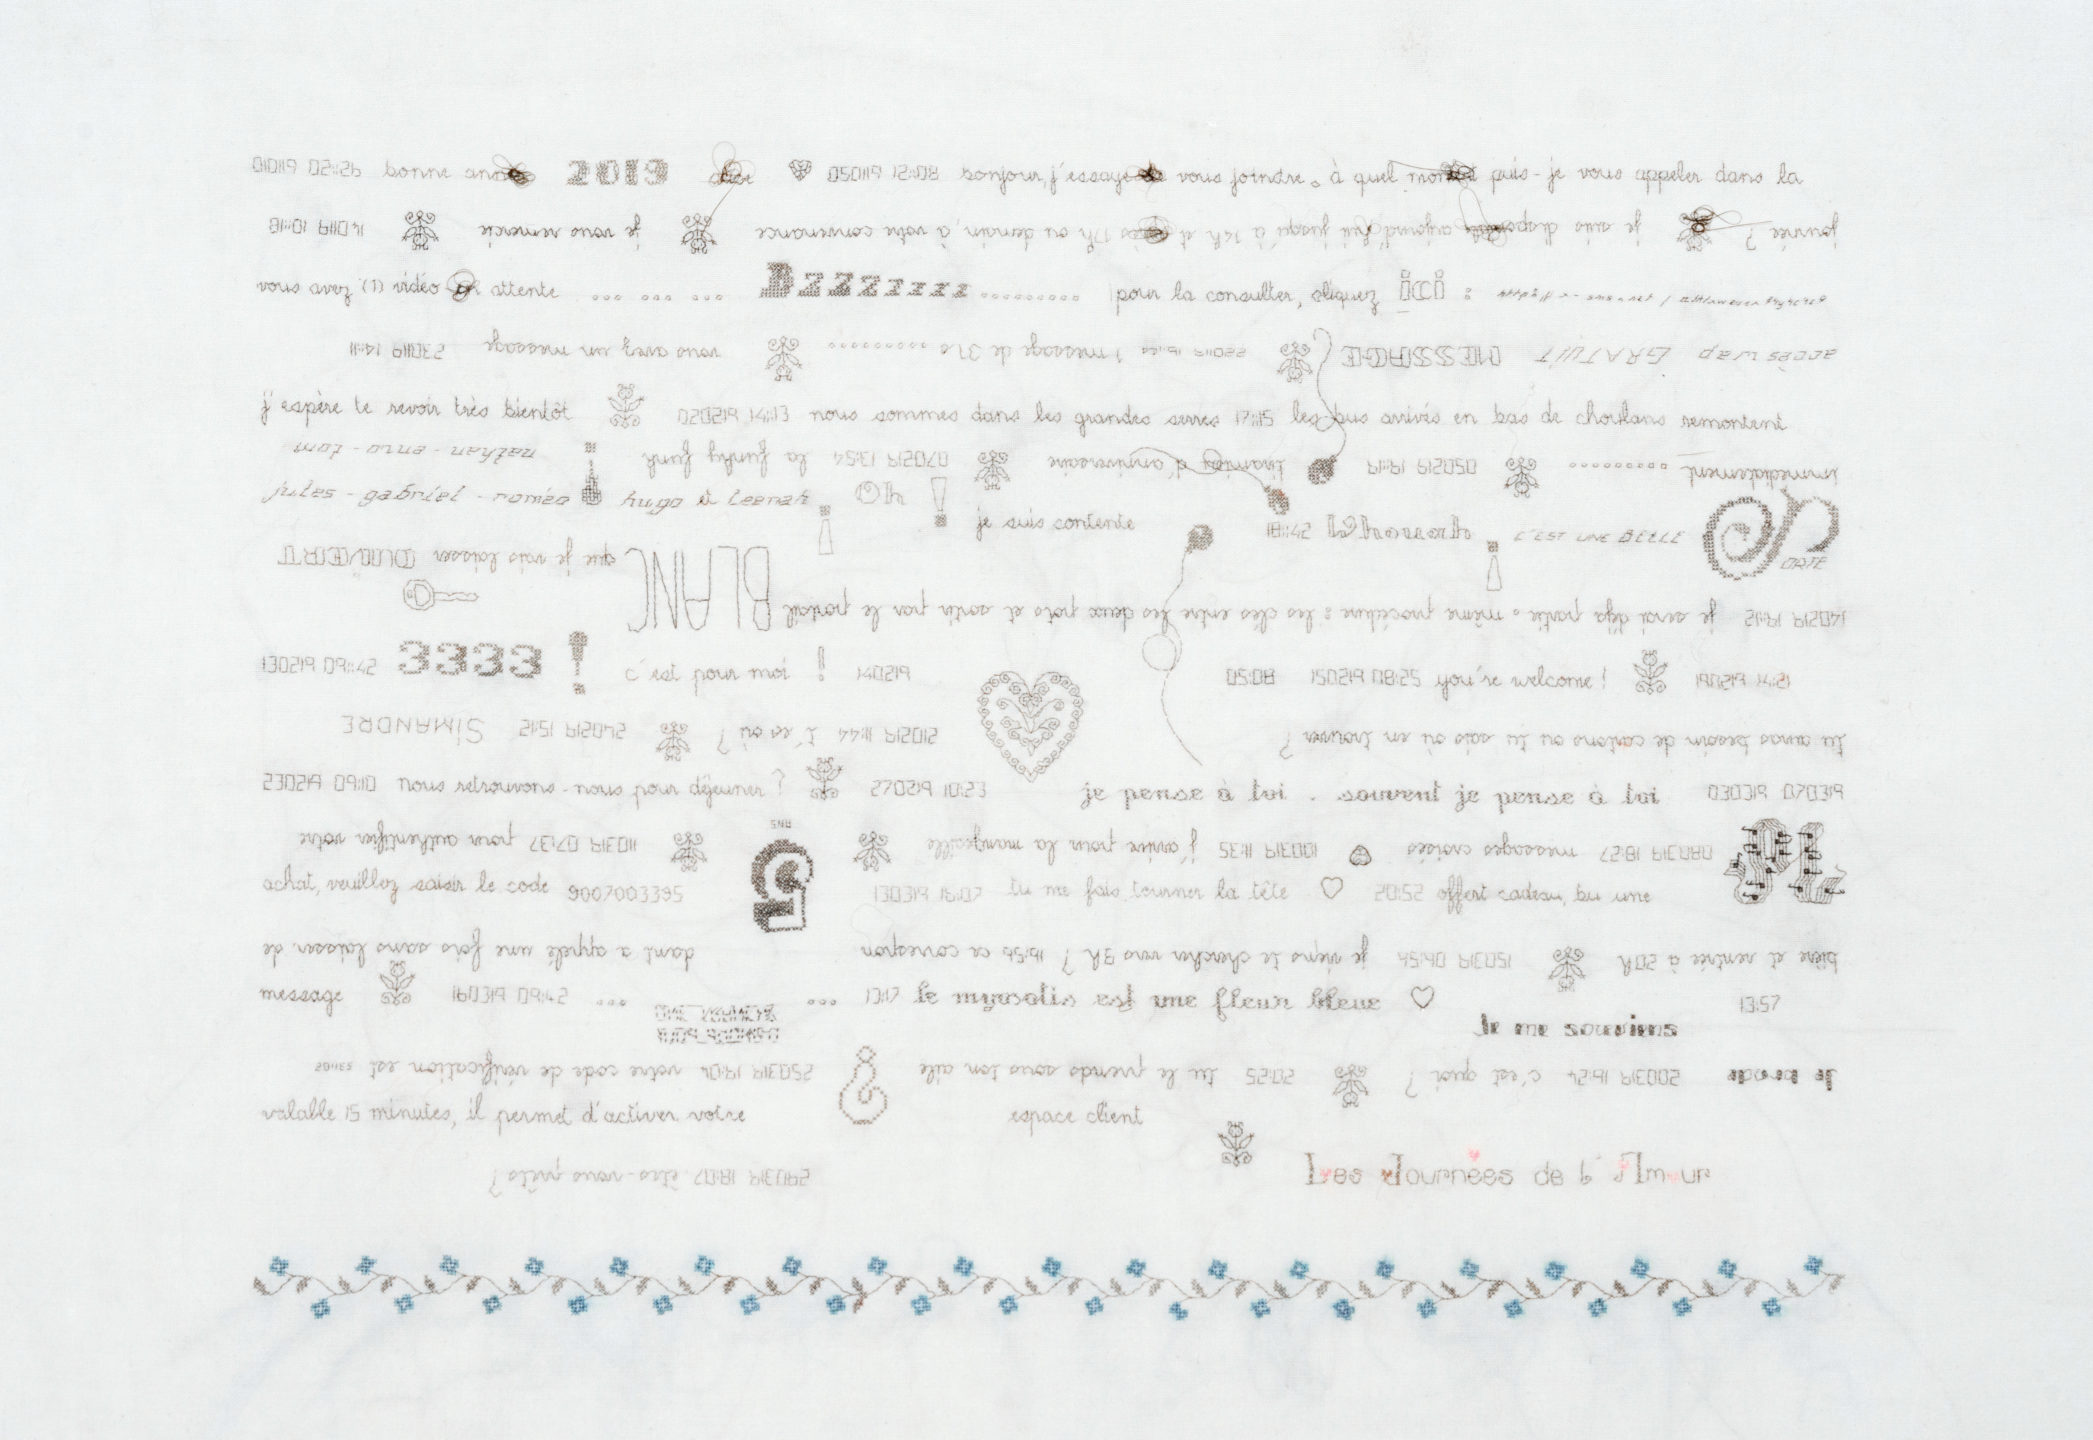 010119 02:26 bonne année 2019 050119 12:08 bonjour, j'essaye de vous joindre. à quel moment puis-je vous appeler dans la
journée ? je suis disponible aujourd'hui jusqu'à 14h et dès 17h ou demain, à votre convenance je vous remercie 140119 10:18
vous avez (1) vidéo en attente ... ... ... Bzzzzzzz ......... pour la consulter, cliquez ici :
accès wap GRATUIT MESSAGE 220119 1 message de 37s .......... vous avez un message 230119 14:11
j'espère te revoir très bientôt 020219 14:13 nous sommes dans les grandes serres 17:15 les bus arrivés en bas de remontent
immédiatement .......... 050219 19:19 d'anniversaire 070219 13:54 la funky funk ! nathan - enzo - tom
jules - gabriel - roméo ! hugo & leenah ! Oh ! je suis contente 18:42 ! C'EST UNE BELLE
140219 19:12 je serai déjà partie : même procédure : les clés entre les deux pots et sortir par le portail BLANC que je vais laisser OUVERT
130219 09:42 3333 ! c'est pour moi ! 140219 05:08 150219 08:25 you're welcome ! 190219 14:21
tu aurais besoin de cartons ou tu sais où en trouver ? 210219 11:44 t'es où ? 240219 15:12 SIMANDRE
230219 09:10 nous retrouvons-nous pour déjeuner ? 270219 10:23 je pense à toi . souvent je pense à toi 030319 070319
080319 18:27 messages croisés 100319 11:35 j'arrive pour la mangeaille SMS 110319 07:37 pour authentifier votre
achat, veuillez saisir le code 9007003395 130319 18:07 tu me fais tourner la tête 20:52 offert cadeau, bu une
bière et rentrée à 20h 150319 06:54 je viens te chercher vers 3h ? 16:56 ce correspondant a appelé une fois sans laisser de
message 160319 09:42 ... ... ... 13:17 le myosotis est une fleur bleue 13:57
Je me souviens
Je brode 200319 16:24 c'est quoi ? 20:25 tu le prends sous ton aile 250319 19:04 votre code de vérification est
valable 15 minutes, il permet d'activer votre espace client
290319 18:07 êtes-vous prêts ?
Les Journées de l'Amour